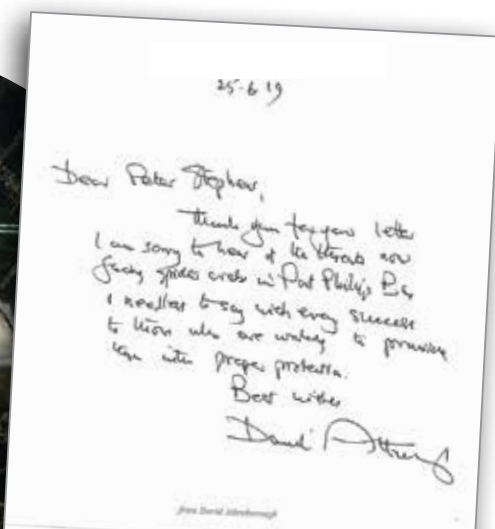 25.6.19
Dear Peter Stephens,
Thank you for your letter
I am sorry to hear of the threats now
facing spider crabs in Port Phillip Bay
& needless to say wish every success
to those who are working to
them with proper protection.
Best wishes
David Att
from David Attenborough